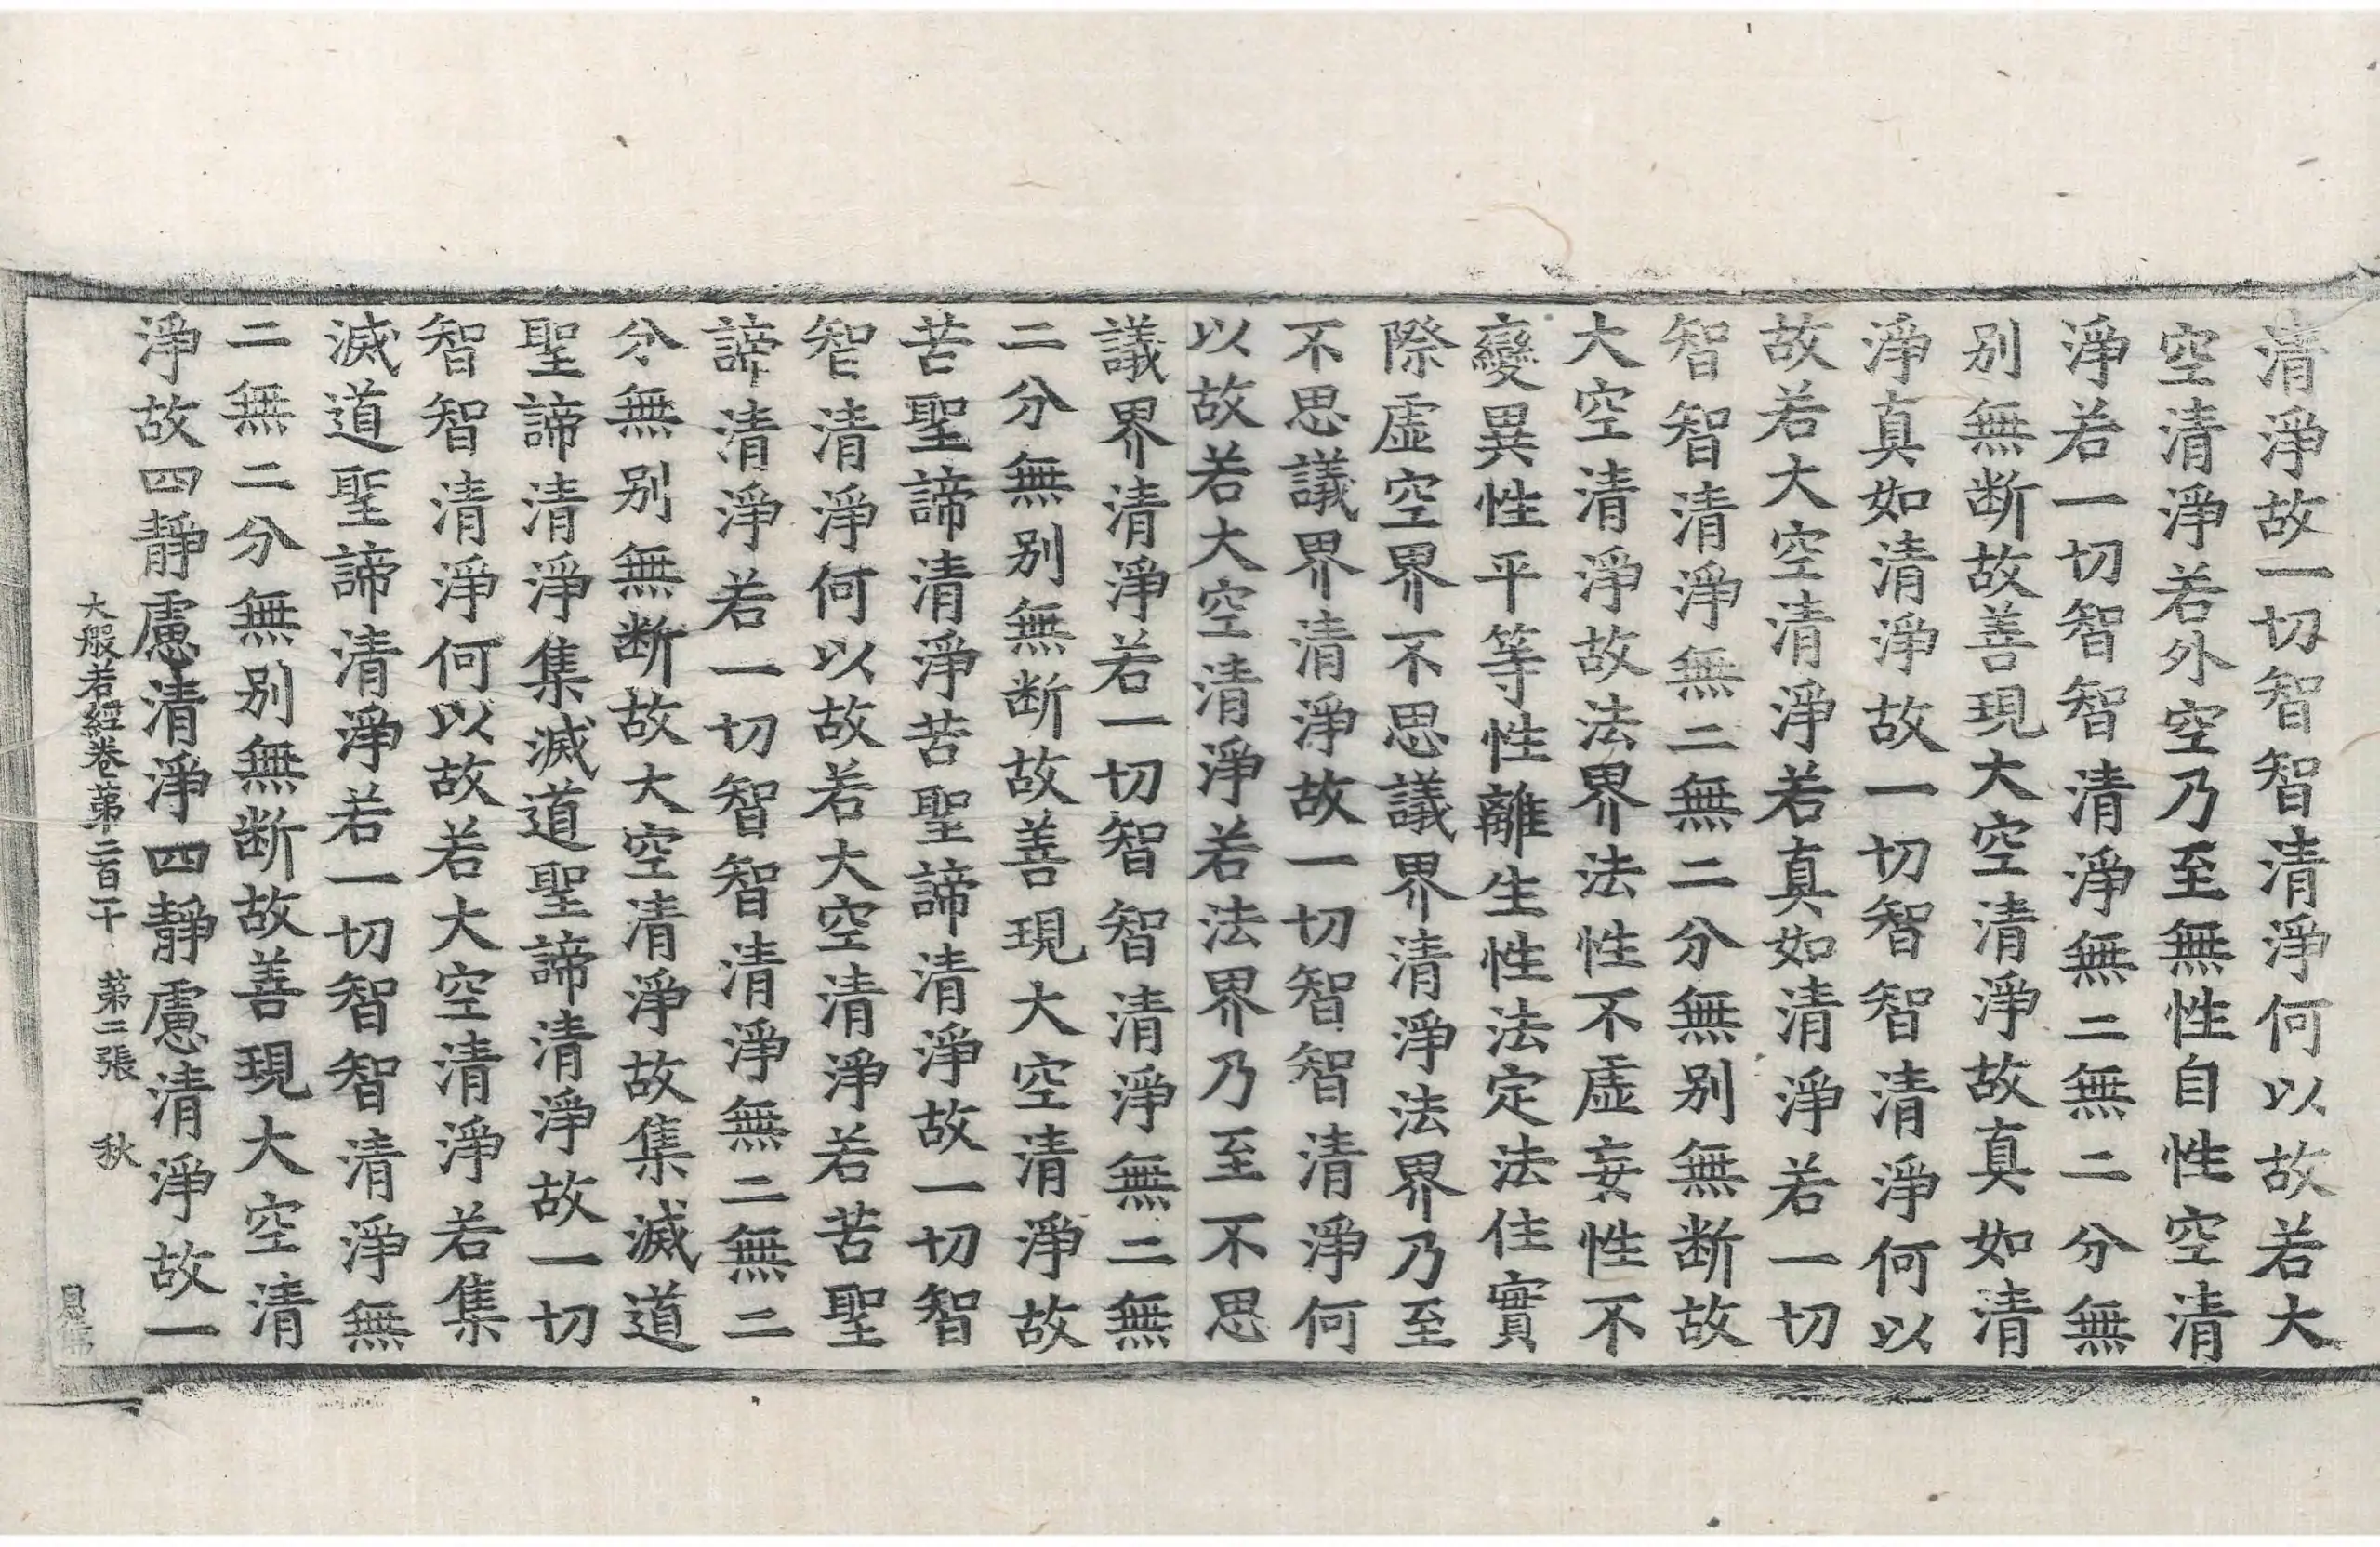 清淨故一切智智清淨何以故若大
空清淨若外空乃至無性自性空清
淨若一切智智清淨無二無二分無
别無断故善現大空清淨故真如清
淨真如清淨故一切智智清淨何以
故若大空清淨若真如清淨若一切
智智清淨無二無二分無别無断故
大空清淨故法界法性不虛妄性不
變異性平等性離生性法定法住實
際虛空界不思議界清淨法界乃至
不思議界清淨故一切智智清淨何
以故若大空清淨若法界乃至不思
議界清淨若一切智智清淨無二無
二分無别無断故善現大空清淨故
苦聖諦清淨苦聖諦清淨故一切智
智清淨何以故若大空清淨若苦聖
諦清淨若一切智智清淨無二無二
分無别無断故大空清淨故集滅道
聖諦清淨集滅道聖諦清淨故一切
智智清淨何以故若大空清淨若集
滅道聖諦清淨若一切智智清淨無
二無二分無别無断故善現大空清
淨故四靜慮清淨四靜慮清淨故一
大般若經卷第二百十 第二張 秋